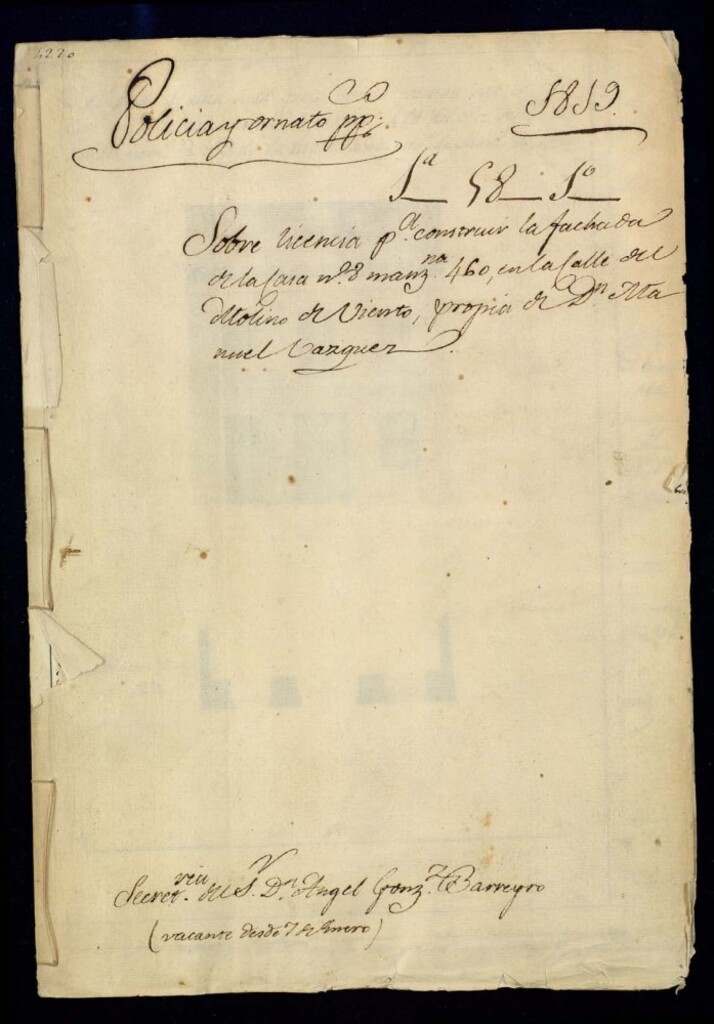 Policia y ornato pp.
1819
1ª 58 1º
Sobre licencia pª construir la fachada
de la Casa nº 8 manzna. 460, en la Calle del
Molino de Viento, propia de Dn Ma
nuel Vazquez.
Secretria. del Sr. Dn. Angel Gonzz. Barreyro
(vacante desde 7 de Enero)